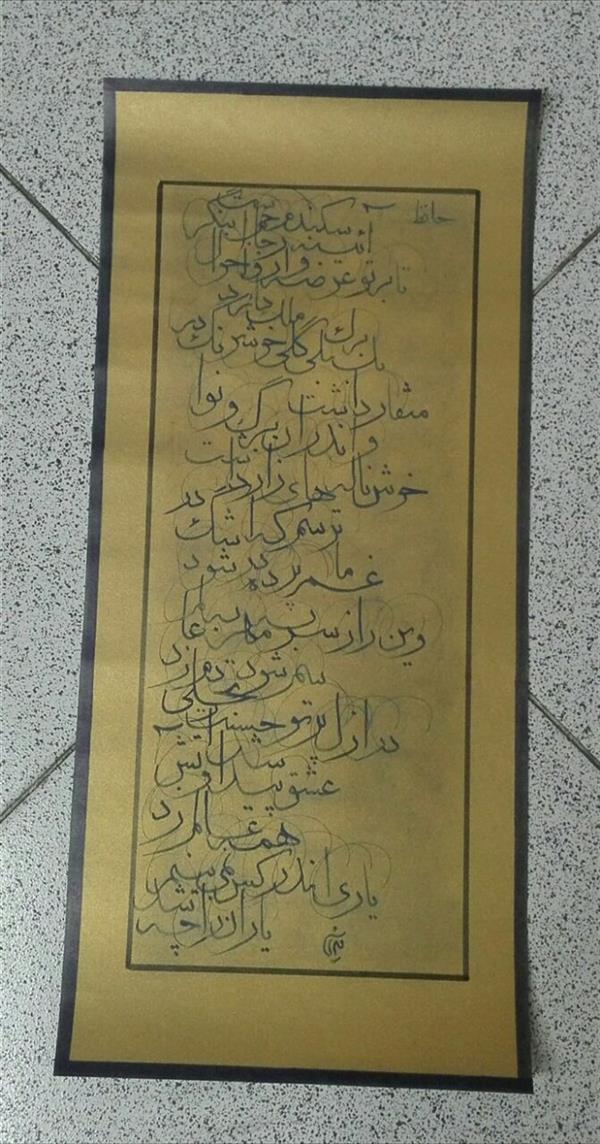 حافظ
آئینه سکندر جام جم است بنگر
تا بر تو عرضه دارد احوال
ملک دارا
بلبلی برگ گلی خوش رنگ در
منقار داشت
و اندر آن برگ و نوا
خوش ناله های زار داشت
ترسم که اشک در
غم ما پرده در شود
وین راز سر به مهر به عا
لم سمر شود
در ازل پرتو حسنت ز تجلی دم زد
عشق پیدا شد و آتش
به همه عالم زد
یاری اندر کس نمی بینیم
یاران را چه شد